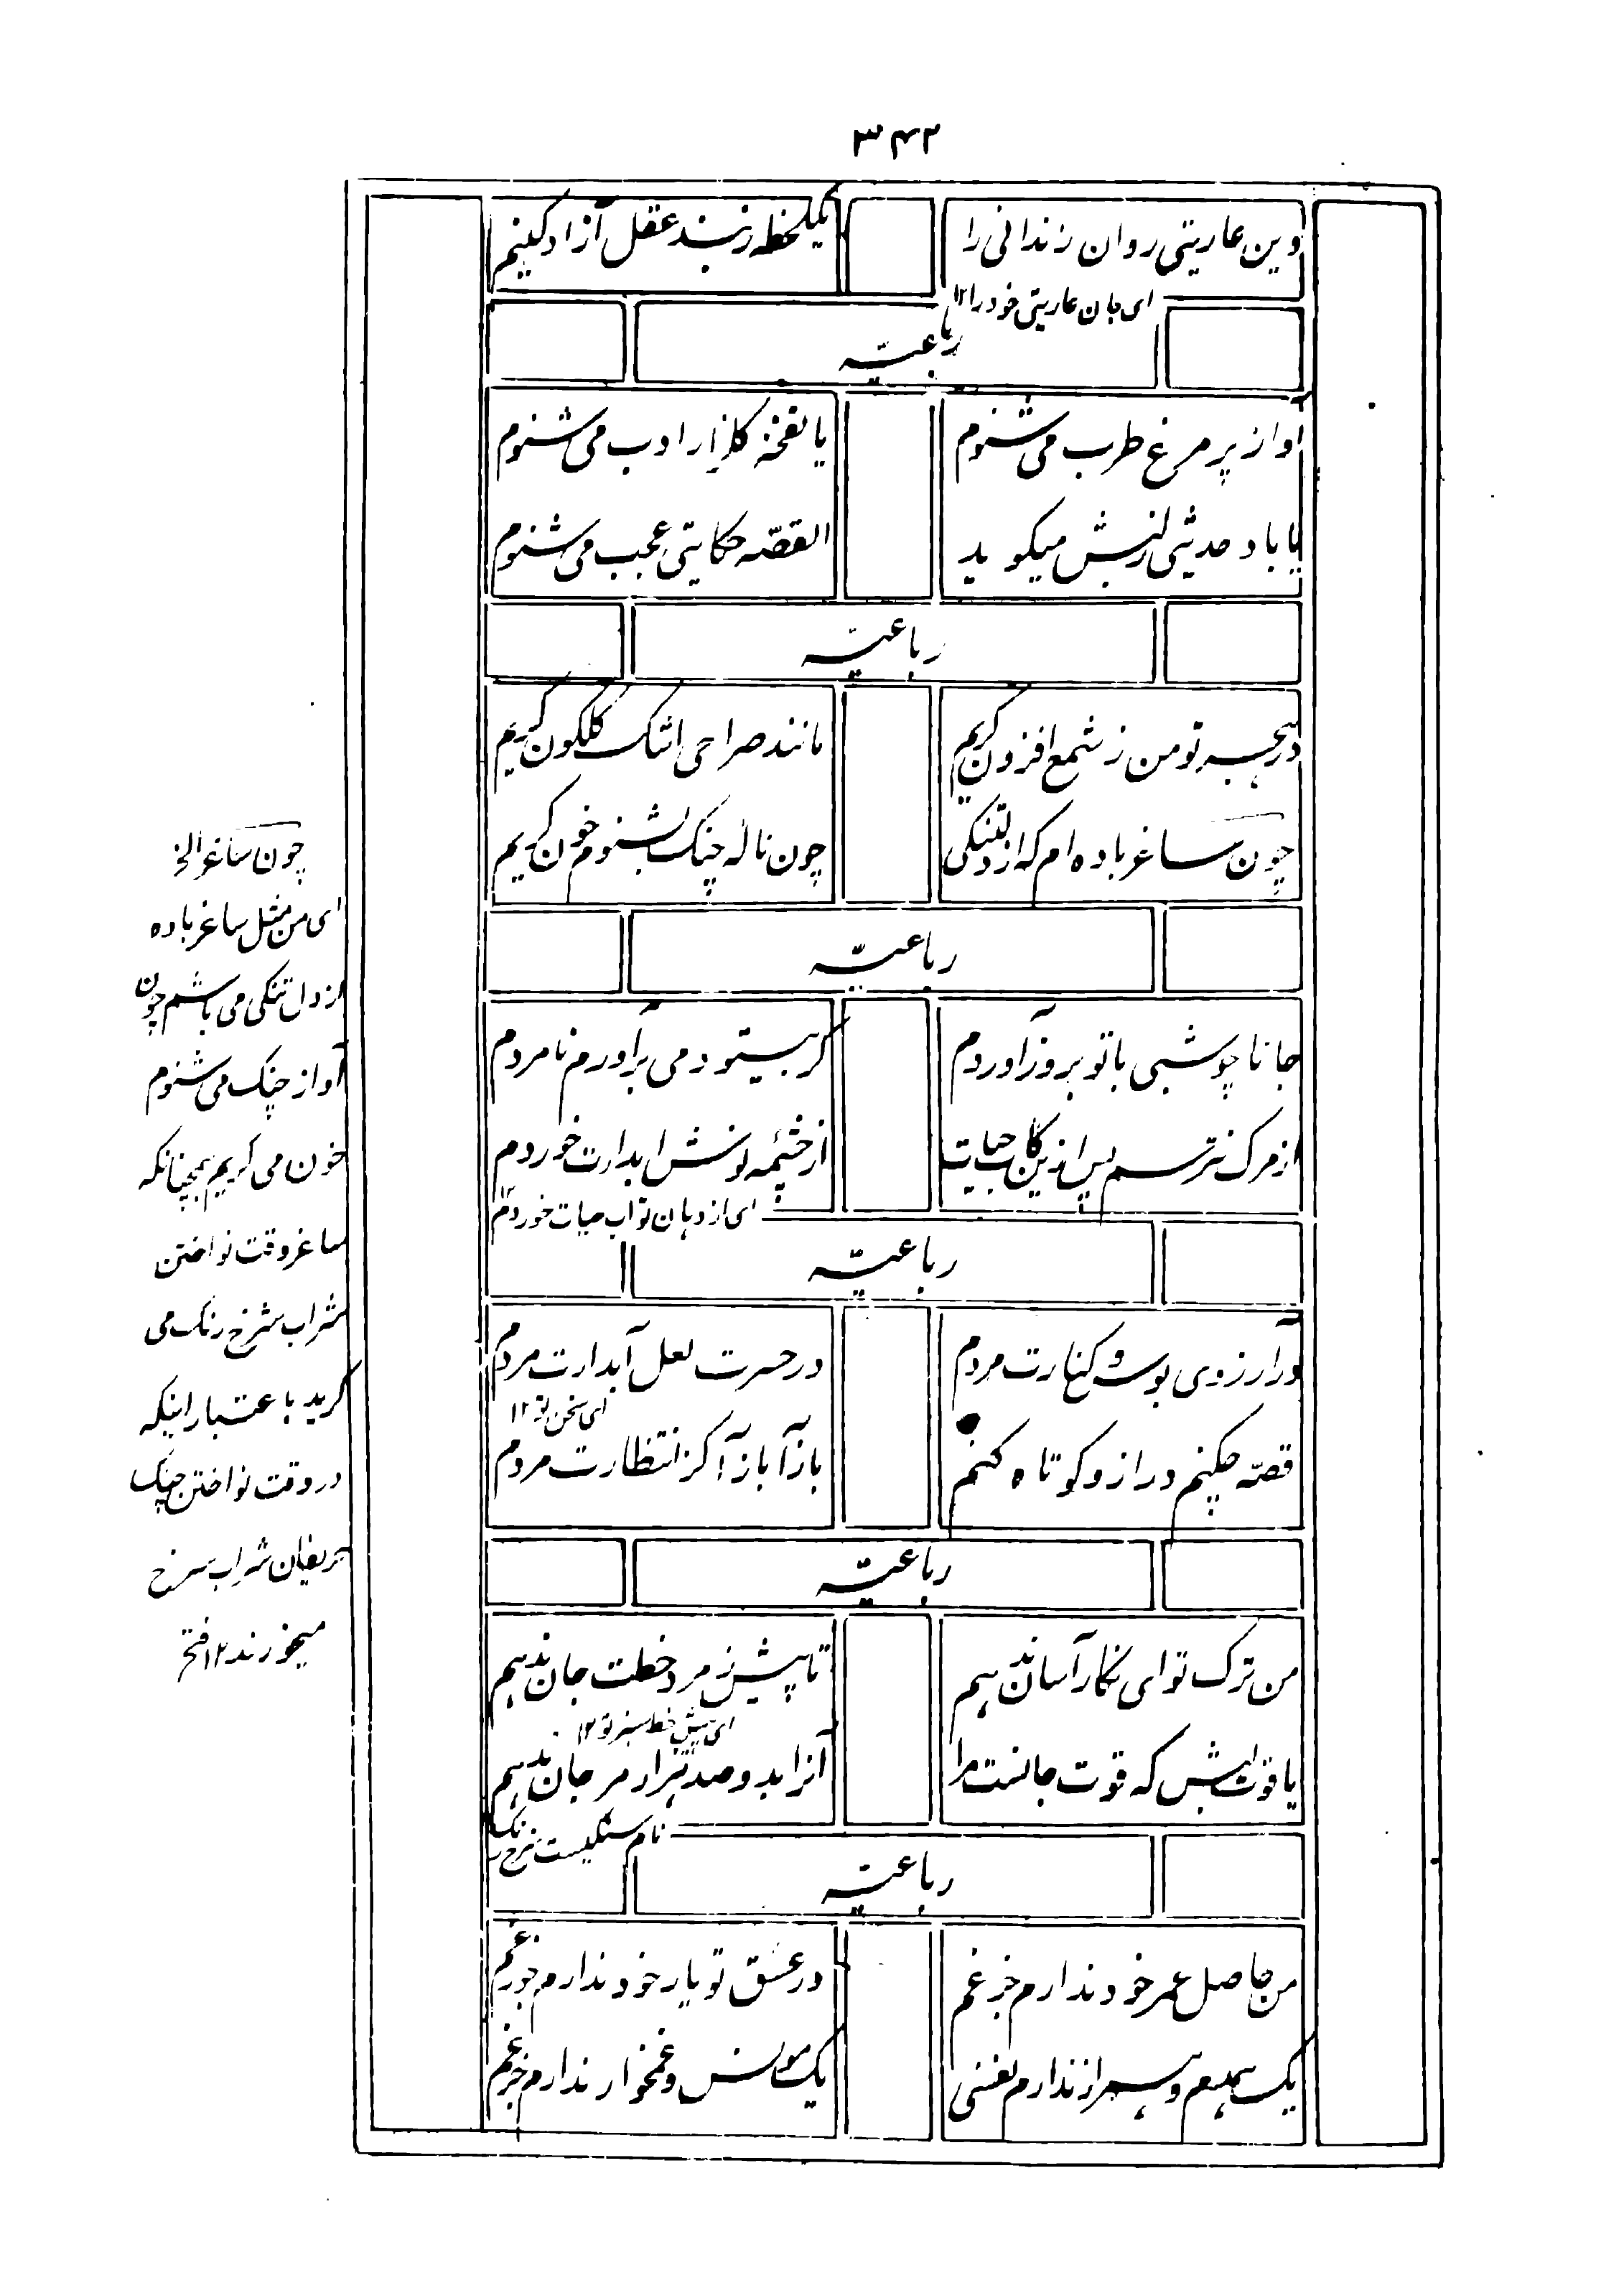 ۳۴۲
وین عاریتی روان زندانی را
یکلحظه ز بند عقل آزاد کنیم
ای جان عاریتی خود را ۱۲
رباعیّه
آواز پر مرغ طرب می شنوم
یا نفخهٔ گلزار ادب می شنوم
یا باد حدیثی ز لبش میگوید
القصّه حکایتی عجب می شنوم
رباعیّه
در هجر تو من ز شمع افزون گریم
مانند صراحی اشک گلگون گریم
چون ساغر باده ام که از دلتنگی
چون ناله چنگ بشنوم خون گریم
رباعیّه
جانا چو شبی با تو بروز آوردم
گر بیتو دمی برآورم نامردم
از مرگ نترسم پس ازین کاب حیات
از چشمه نوش ابدارت خوردم
ای از دهان تو اب حیات خوردم ۱۲
رباعیّه
در آرزوی بوس و کنارت مردم
در حسرت لعل آبدارت مردم
ای سخن تو ۱۲
قصّه چکنم دراز و کوتاه کنم
بازآ بازآ کز انتظارت مردم
رباعیّه
من ترک تو ای نگار آسان ندهم
تا پیش زمرد خطت جان ندهم
ای پیش خط سبز تو ۱۲
یاقوت لبش که قوت جانست مرا
آنرا بدو صد هزار مرجان ندهم
نام سنگیست سرخ رنگ
رباعیّه
من حاصل عمر خود ندارم جز غم
در عشق تو یار خود ندارم جز غم
یک همدم و همراز ندارم نفسی
یک مونس و غمخوار ندارم جز غم
چون ساغر الخ
ای من مثل ساغر باده
از دل تنگی می باشم چون
آواز چنگ می شنوم
خون می گریم همچنانکه
ساغر وقت نواختن
شراب سرخ رنگ می
گرید باعتبار اینکه
در وقت نواختن چنگ
حریفان شراب سرخ
میخورند ۱۲ فتح